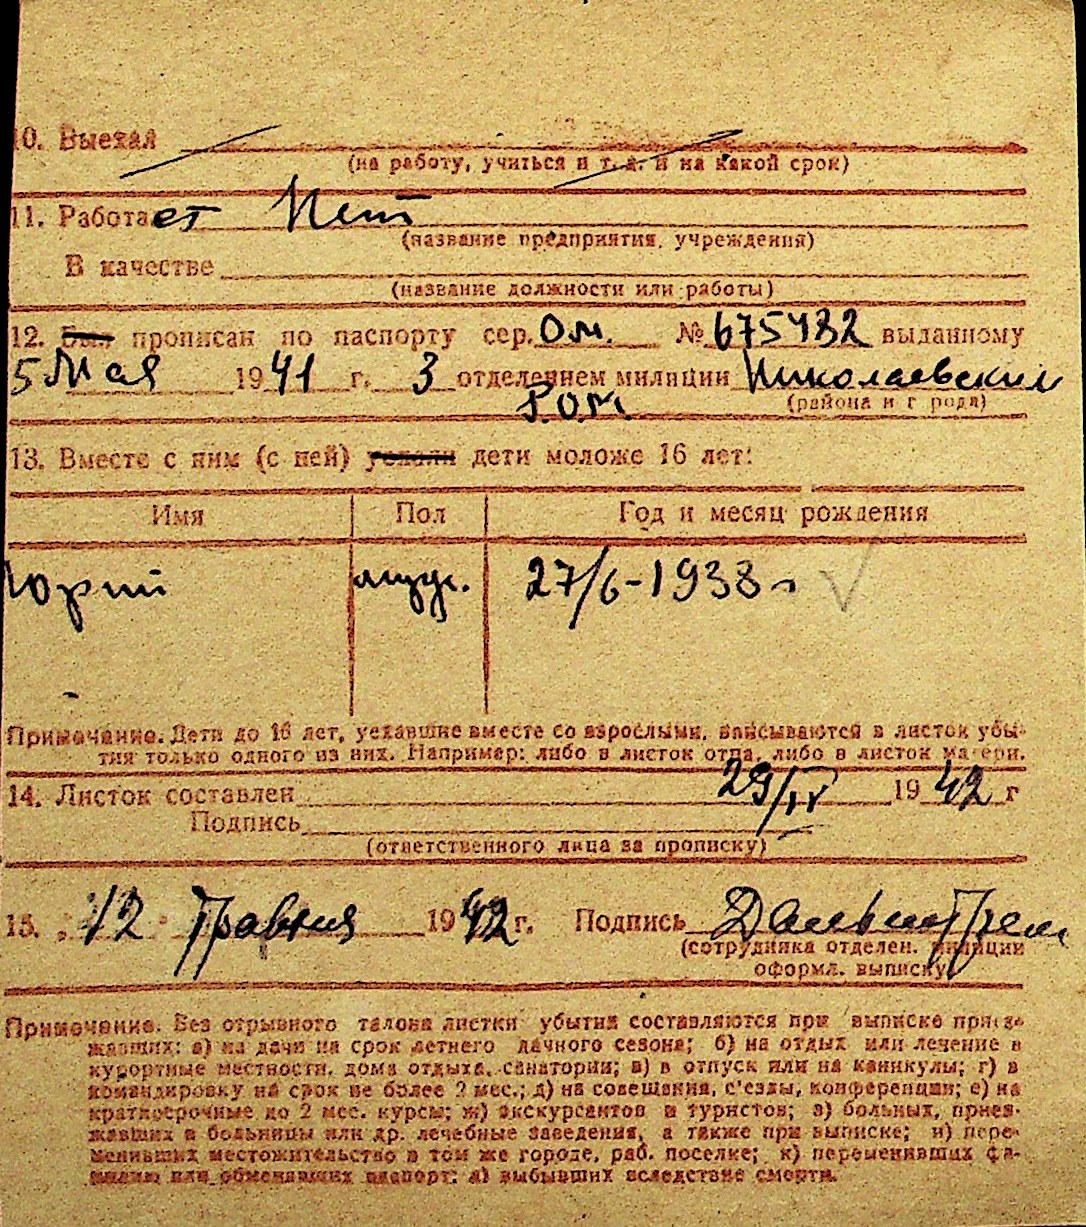 10. Выехал
(на работу, учиться и т. д. и на какой срок)
11. Работает Нет
(название предприятия, учреждения)
В качестве
(название должности или работы)
12. Был прописан по паспорту сер. О.М. № 675432 выданному
5 Мая 1941 г. 3 отделением милиции Николаевским
Р.О.М. (района и города)
13. Вместе с ним (с ней) уехали дети моложе 16 лет:
Имя Пол Год и месяц рождения
Юрий муж. 27/6-1938 г
Примечание. Дети до 16 лет, уехавшие вместе со взрослыми, вписываются в листок убы-
тия только одного из них. Например: либо в листок отца, либо в листок матери.
14. Листок составлен 29/IV 1942 г
Подпись
(ответственного лица за прописку)
15. 12 Травня 1942 г. Подпись
(сотрудника отделен. милиции
оформл. выписку)
Примечание. Без отрывного талона листки убытия составляются при выписке приез-
жавших: а) на дачи на срок летнего дачного сезона; б) на отдых или лечение в
курортные местности, дома отдыха, санатории; в) в отпуск или на каникулы; г) в
командировку на срок не более 2 мес.; д) на совещания, с'езды, конференции; е) на
краткосрочные до 2 мес. курсы; ж) экскурсантов и туристов; з) больных, приез-
жавших в больницы или др. лечебные заведения, а также при выписке; и) пере-
менивших местожительство в том же городе, раб. поселке; к) переменивших фа-
милию или обменявших паспорт; л) выбывших вследствие смерти.